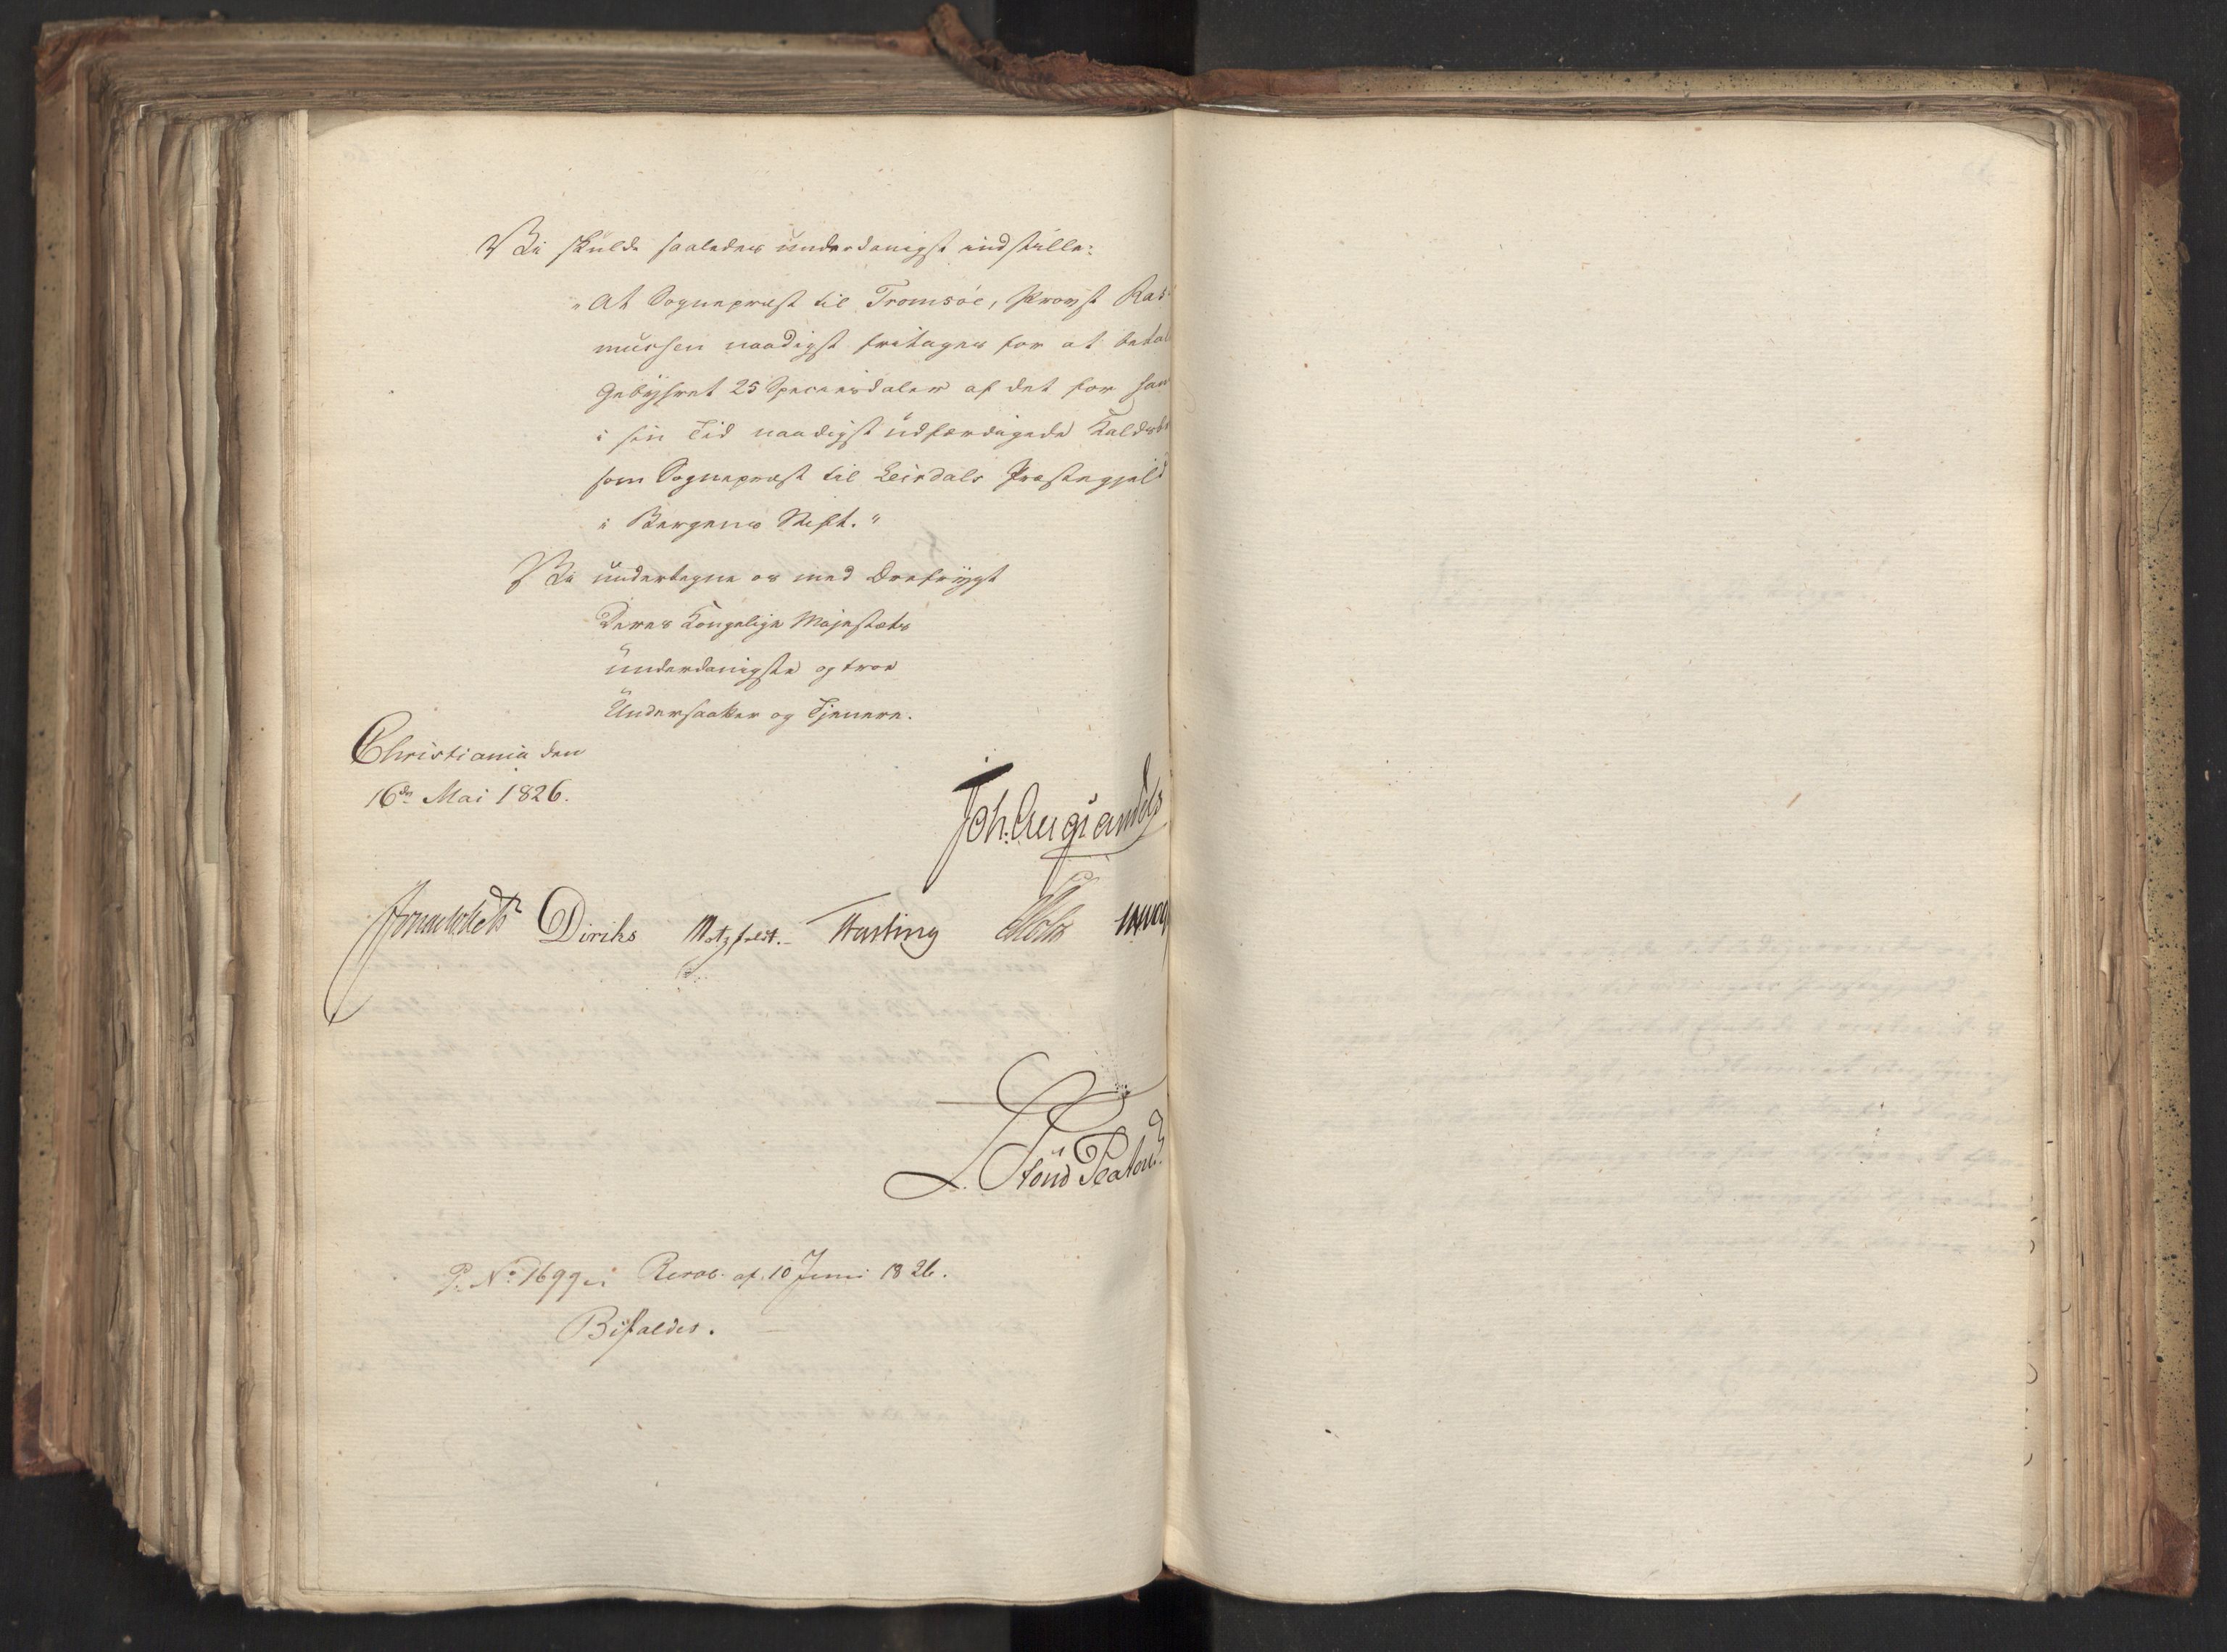 Vi skulde saaledes underdanigst indstille:
"At Sogneprest til Tromsöe, Provst Ras-
mussen naadigst fritages for at betal
Gebyhret 25 Speciesdaler af det for ham
i sin Tid naadigst udfærdigede Kalds
som Sogneprest til Leirdals Præstegjeld
i Bergens Stift."
Vi undertegne os med Dybfrygt
Deres Kongelige Majestæts
underdanigste og troe
Undersaatter og Tjenere.
Christiania den
16de Mai 1826.
Joh. Aug Sandels
Jonas Collett Diriks Motzfeldt. Fasting Holst
L. Stöud Platou
P. No 1699 Resol. af 10 Juni 1826.
Bifaldes.